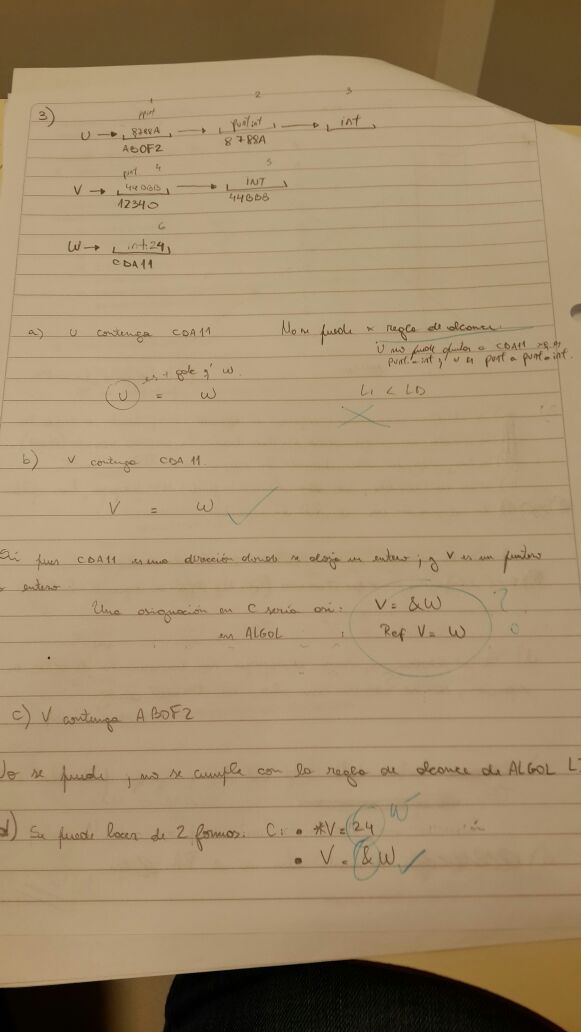 1 2 3
3) ppint
U → 8788A → punt int → int
ABOF2 8788A
punt 4 5
V → 44BBB → INT
12340 44BBB
6
W → int: 24
CDA11
a) U contenga CDA11 No se puede x regla de alcance.
U no puede apuntar a CDA11
punt - int, y U es punt a punt - int.
es + gde q' W.
U = W Li < LD
b) V contenga CDA11.
V = W
Si pues CDA11 es una dirección donde se aloja un entero; y V es un puntero
entero.
Una asignación en C sería así: V = &W ?
en ALGOL : Ref V = W
c) V contenga ABOF2
No se puede, no se cumple con la regla de alcance de ALGOL
W
d) Se puede hacer de 2 formas. C: • *V = 24
• V = &W